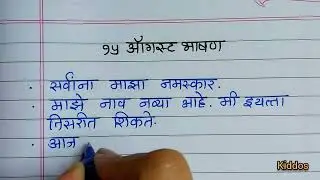 १५ ऑगस्ट भाषण
· सर्वांना माझा नमस्कार.
· माझे नाव नव्या आहे. मी इयत्ता
तिसरीत शिकते.
· आज
Kiddos